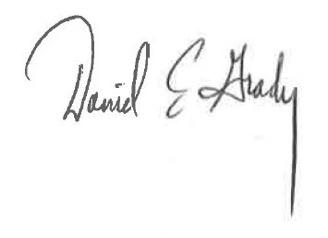 Daniel E Grady